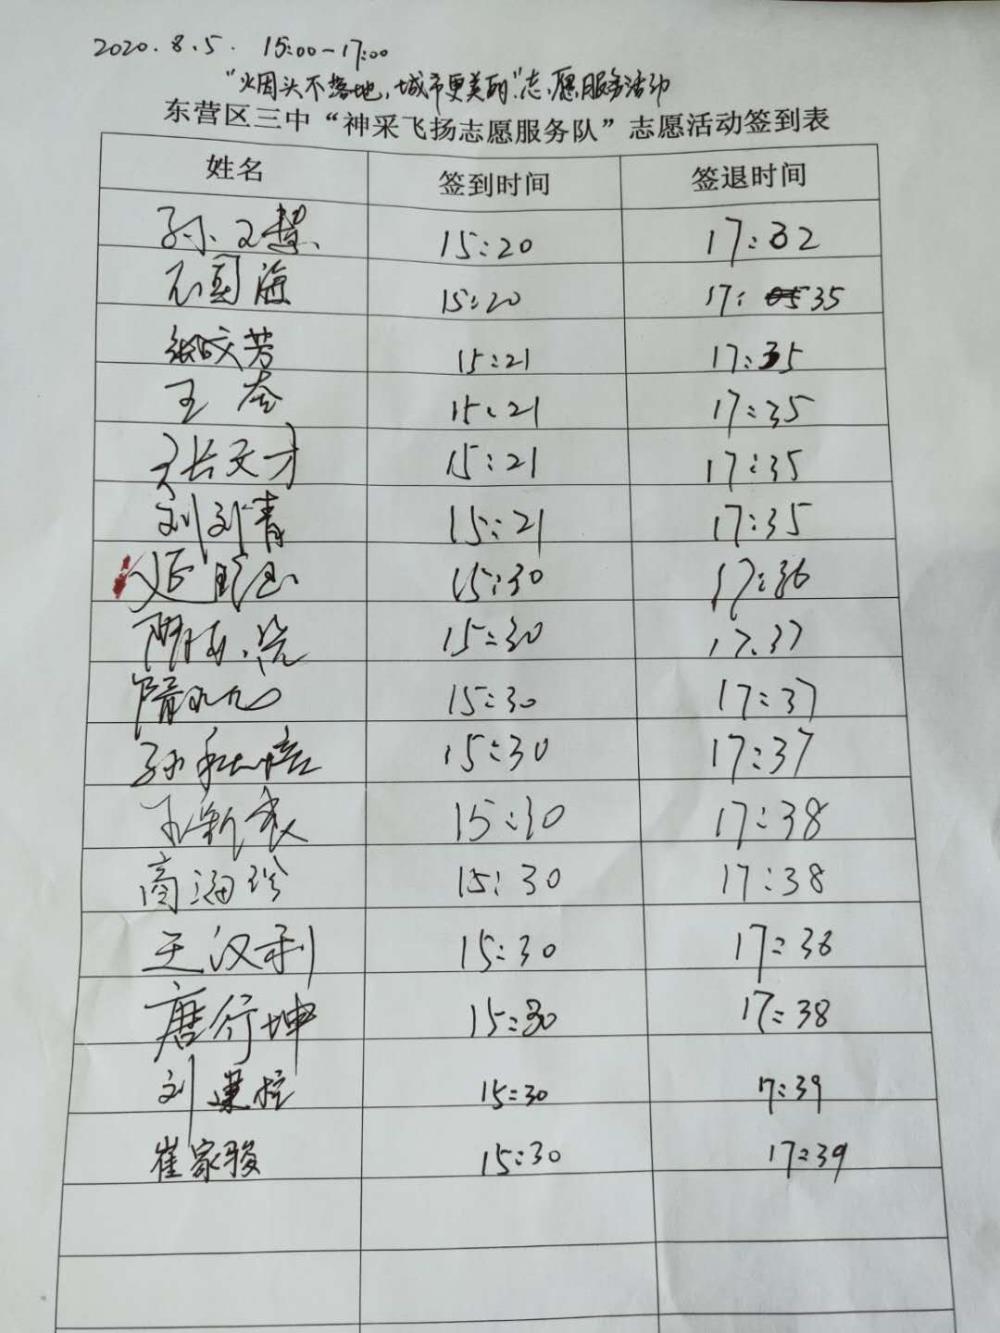 2020.8.5. 15:00-17:00
"烟头不落地,城市更美丽"志愿服务活动
东营区三中“神采飞扬志愿服务队”志愿活动签到表
姓名 签到时间 签退时间
孙文慧 15:20 17:32
石国海 15:20 17:35
张姣芳 15:21 17:35
王 15:21 17:35
张文才 15:21 17:35
刘青 15:21 17:35
延 15:30 17:36
15:30 17.37
隋 15:30 17:37
孙 15:30 17:37
王新 15:30 17:38
商海珍 15:30 17:38
王汉利 15:30 17:38
唐行坤 15:30 17:38
刘 15:30 17:39
崔家骏 15:30 17:39